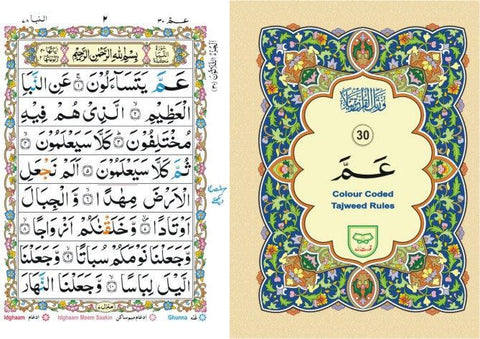 النبا ٧٨
٢
عمّ ٣٠
بِسْمِ اللهِ الرَّحْمٰنِ الرَّحِيْمِ
عَمَّ يَتَسَآءَلُوْنَ ۝١ عَنِ النَّبَاِ
الْعَظِيْمِ ۝٢ الَّذِيْ هُمْ فِيْهِ
مُخْتَلِفُوْنَ ۝٣ كَلَّا سَيَعْلَمُوْنَ ۝٤
ثُمَّ كَلَّا سَيَعْلَمُوْنَ ۝٥ اَلَمْ نَجْعَلِ
الْاَرْضَ مِهٰدًا ۝٦ وَّالْجِبَالَ
اَوْتَادًا ۝٧ وَّخَلَقْنٰكُمْ اَزْوَاجًا ۝٨
وَّجَعَلْنَا نَوْمَكُمْ سُبَاتًا ۝٩ وَّجَعَلْنَا
الَّيْلَ لِبَاسًا ۝١٠ وَّجَعَلْنَا النَّهَارَ
منزل ٧
Idghaam ادغام
Idghaam Meem Saakin ادغام میم ساکن
Ghunna غنّه
وَرَتِّلِ الْقُرْاٰنَ تَرْتِيْلًا
30
عَمَّ
Colour Coded
Tajweed Rules